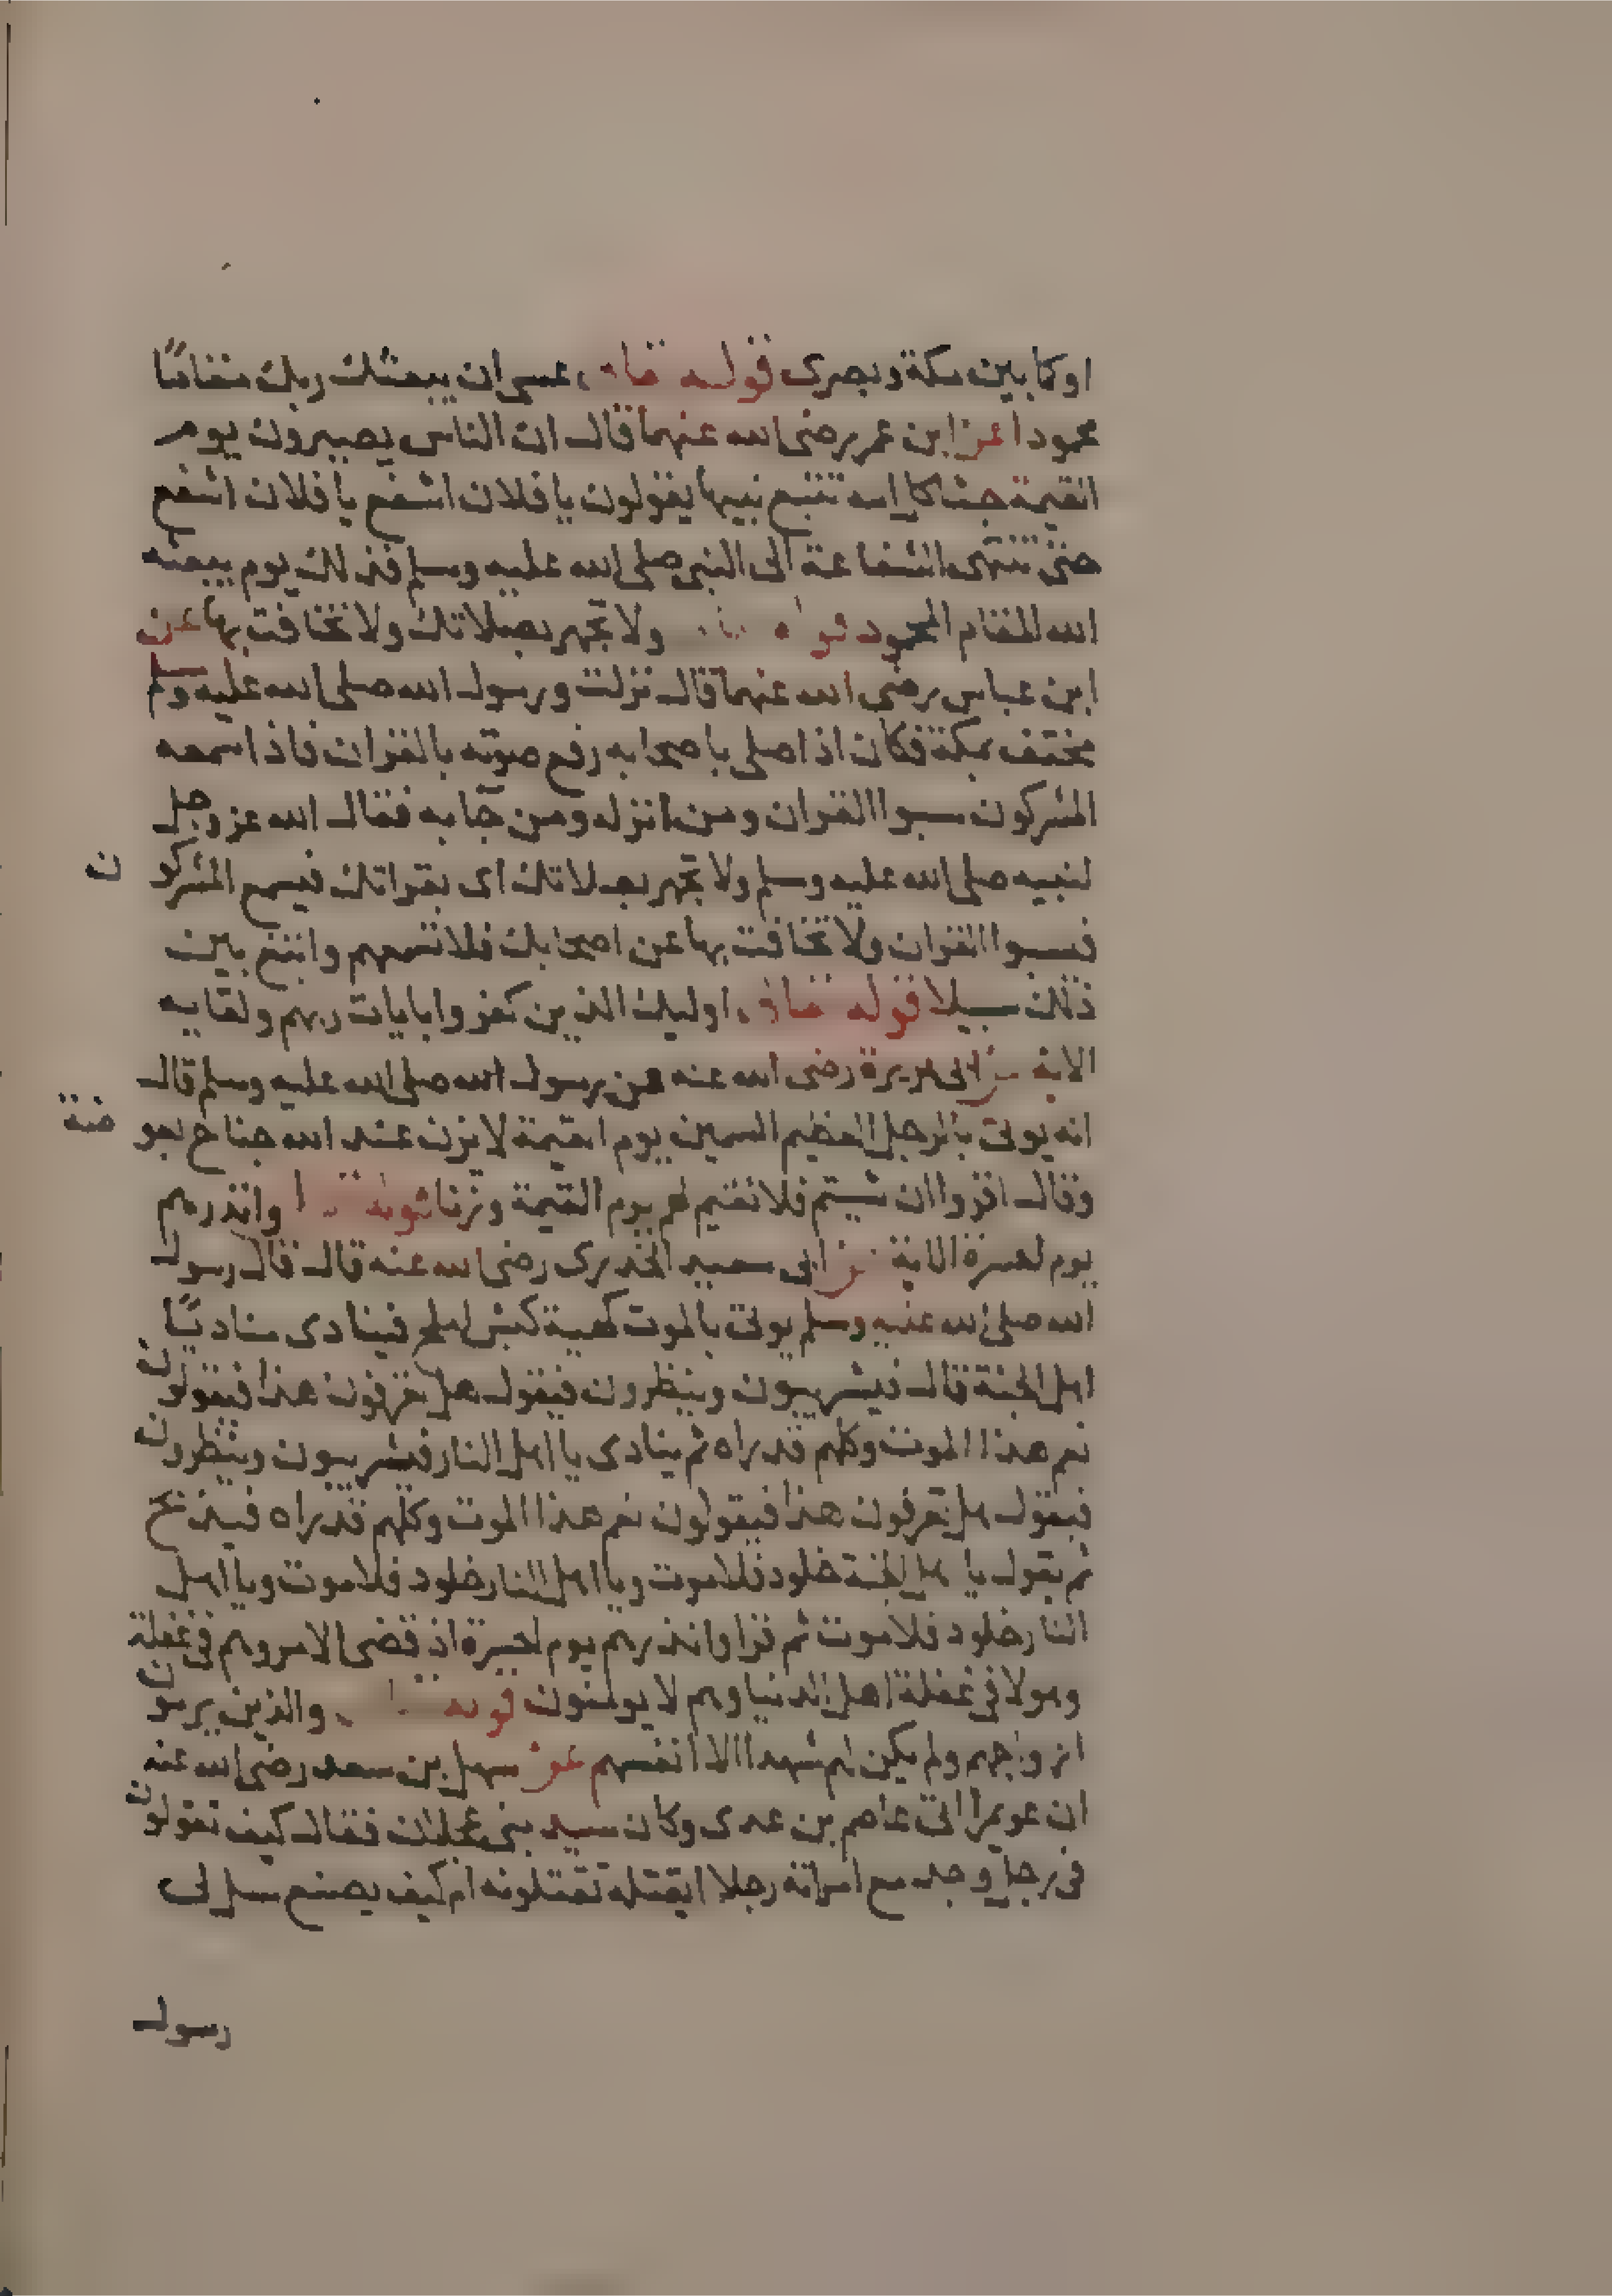 اوكما بين مكة وبصرى قوله تعالى عسى ان يبعثك ربك مقاما
محمودا عن ابن عمر رضى الله عنهما قال ان الناس يصيرون يوم
القيمة جثا كل امة تتبع نبيها يقولون يا فلان اشفع يا فلان اشفع
حتى تنتهى الشفاعة الى النبى صلى الله عليه وسلم فذلك يوم يبعثه
الله المقام المحمود قوله ولا تجهر بصلاتك ولا تخافت بها عن
ابن عباس رضى الله عنهما قال نزلت ورسول الله صلى الله عليه وسلم
مختف بمكة فكان اذا صلى باصحابه رفع صوته بالقران فاذا سمعه
المشركون سبوا القران ومن انزله ومن جآ به فقال الله عز وجل
لنبيه صلى الله عليه وسلم ولا تجهر بصلاتك اى بقراتك فيسمع المشركون
فيسبوا القران ولا تخافت بها عن اصحابك فلا تسمعهم وابتغ بين
ذلك سبيلا قوله تعالى اوليك الذين كفروا بايات ربهم ولقايه
الاية عن ابى هريرة رضى الله عنه عن رسول الله صلى الله عليه وسلم قال
انه يوتى بالرجل العظيم السمين يوم القيمة لا يزن عند الله جناح بعوضة
وقال اقروا ان شيتم فلا نقيم لهم يوم القيمة وزنا قوله وانذرهم
يوم الحسرة الاية عن ابى سعيد الخدرى رضى الله عنه قال قال رسول
الله صلى الله عليه وسلم يوتى بالموت كهية كبش املح فينادى مناد يآ
اهل الجنة قال فيشريبون وينظرون فيقول هل تعرفون هذا فيقولون
نعم هذا الموت وكلهم قد راه ثم ينادى يا اهل النار فيشريبون وينظرون
فيقول هل تعرفون هذا فيقولون نعم هذا الموت وكلهم قد راه فيذبح
ثم يقول يا اهل الجنة خلود فلا موت ويا اهل النار خلود فلا موت ويا اهل
النار خلود فلا موت ثم قرا وانذرهم يوم الحسرة اذ قضى الامر وهم فى غفلة
وهولا فى غفلة اهل الدنيا وهم لا يومنون قوله والذين يرمون
ازواجهم ولم يكن لهم شهدا الا انفسهم عن سهل بن سعد رضى الله عنه
ان عويمرا اتى عاصم بن عدى وكان سيد بنى عجلان فقال كيف تقولون
فى رجل وجد مع امراته رجلا ايقتله تقتلونه ام كيف يصنع سل لى
رسول